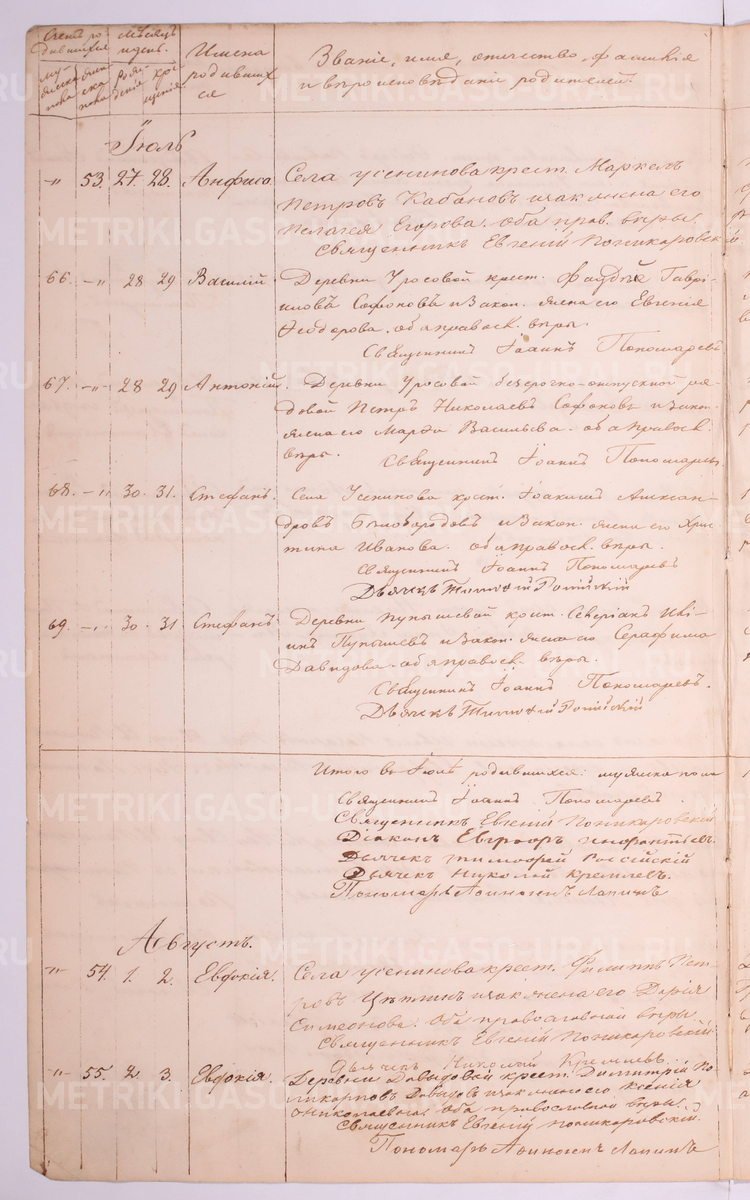 Счетъ ро-
дившихся
Мѣсяцъ
и день.
Имена
родивших
ся
Званіе, имя, отчество, фамилія
и вѣроисповѣданіе родителей.
му-
жеска
пола
жен-
ска
пола
рож-
денія
кре-
щенія
Іюль
-"- 53. 27. 28. Анфиса. Села Усенинова крест. Маркелъ
Петровъ Кабановъ и зак. жена его
Пелагея Егорова. Оба прав. вѣры.
Священникъ Евгеній Поникаровскій.
66. -"- 28 29 Василій. Деревни Уросовой крест. Фаддей Гаврі-
иловъ Софоновъ и закон. жена его Евгенія
Феодорова. оба правосл. вѣры.
Священникъ Іоаннъ Пономаревъ
67. -"- 28 29 Антоній. Деревни Уросовой безсрочно-отпускной ря-
довой Петръ Николаевъ Софоновъ и закон.
жена его Марфа Васильева. оба правосл.
вѣры. Священникъ Іоаннъ Пономаревъ.
68. -"- 30. 31. Стефанъ. Села Усенинова крест. Іоакимъ Алексан-
дровъ Бѣлобородовъ и закон. жена его Хрис-
тина Иванова. оба правосл. вѣры.
Священникъ Іоаннъ Пономаревъ
Дьячекъ Тимофей Россійскій
69. -"- 30. 31 Стефанъ. Деревни Пупышевой крест. Северіанъ Иві-
инъ Пупышевъ и закон. жена его Серафима
Давидова. оба правосл. вѣры.
Священникъ Іоаннъ Пономаревъ.
Дьячекъ Тимофей Россійскій
Итого въ Іюлѣ родившихся: мужеска пола
Священникъ Іоаннъ Пономаревъ.
Священникъ Евгеній Поникаровскій
Діаконъ Евграфъ
Дьячекъ Тимофей Россійскій
Дьячекъ Николай Кремлевъ.
Пономарь Афиногенъ Лапинъ
Августъ.
-"- 54. 1. 2. Евдокія. Села Усенинова крест. Филиппъ Пет-
ровъ и зак. жена его Дарія
Симеонова. Оба православной вѣры
Священникъ Евгеній Поникаровскій
Дьячекъ Николай Кремлевъ.
-"- 55. 2. 3. Евдокія. Деревни Давыдовой крест. Димитрій По-
ликарповъ Давыдовъ и зак. жена его Ксенія
Николаевна. Оба православной вѣры.
Священникъ Евгеній Поникаровскій.
Пономарь Афиногенъ Лапинъ
METRIKI.GASO-URAL.RU